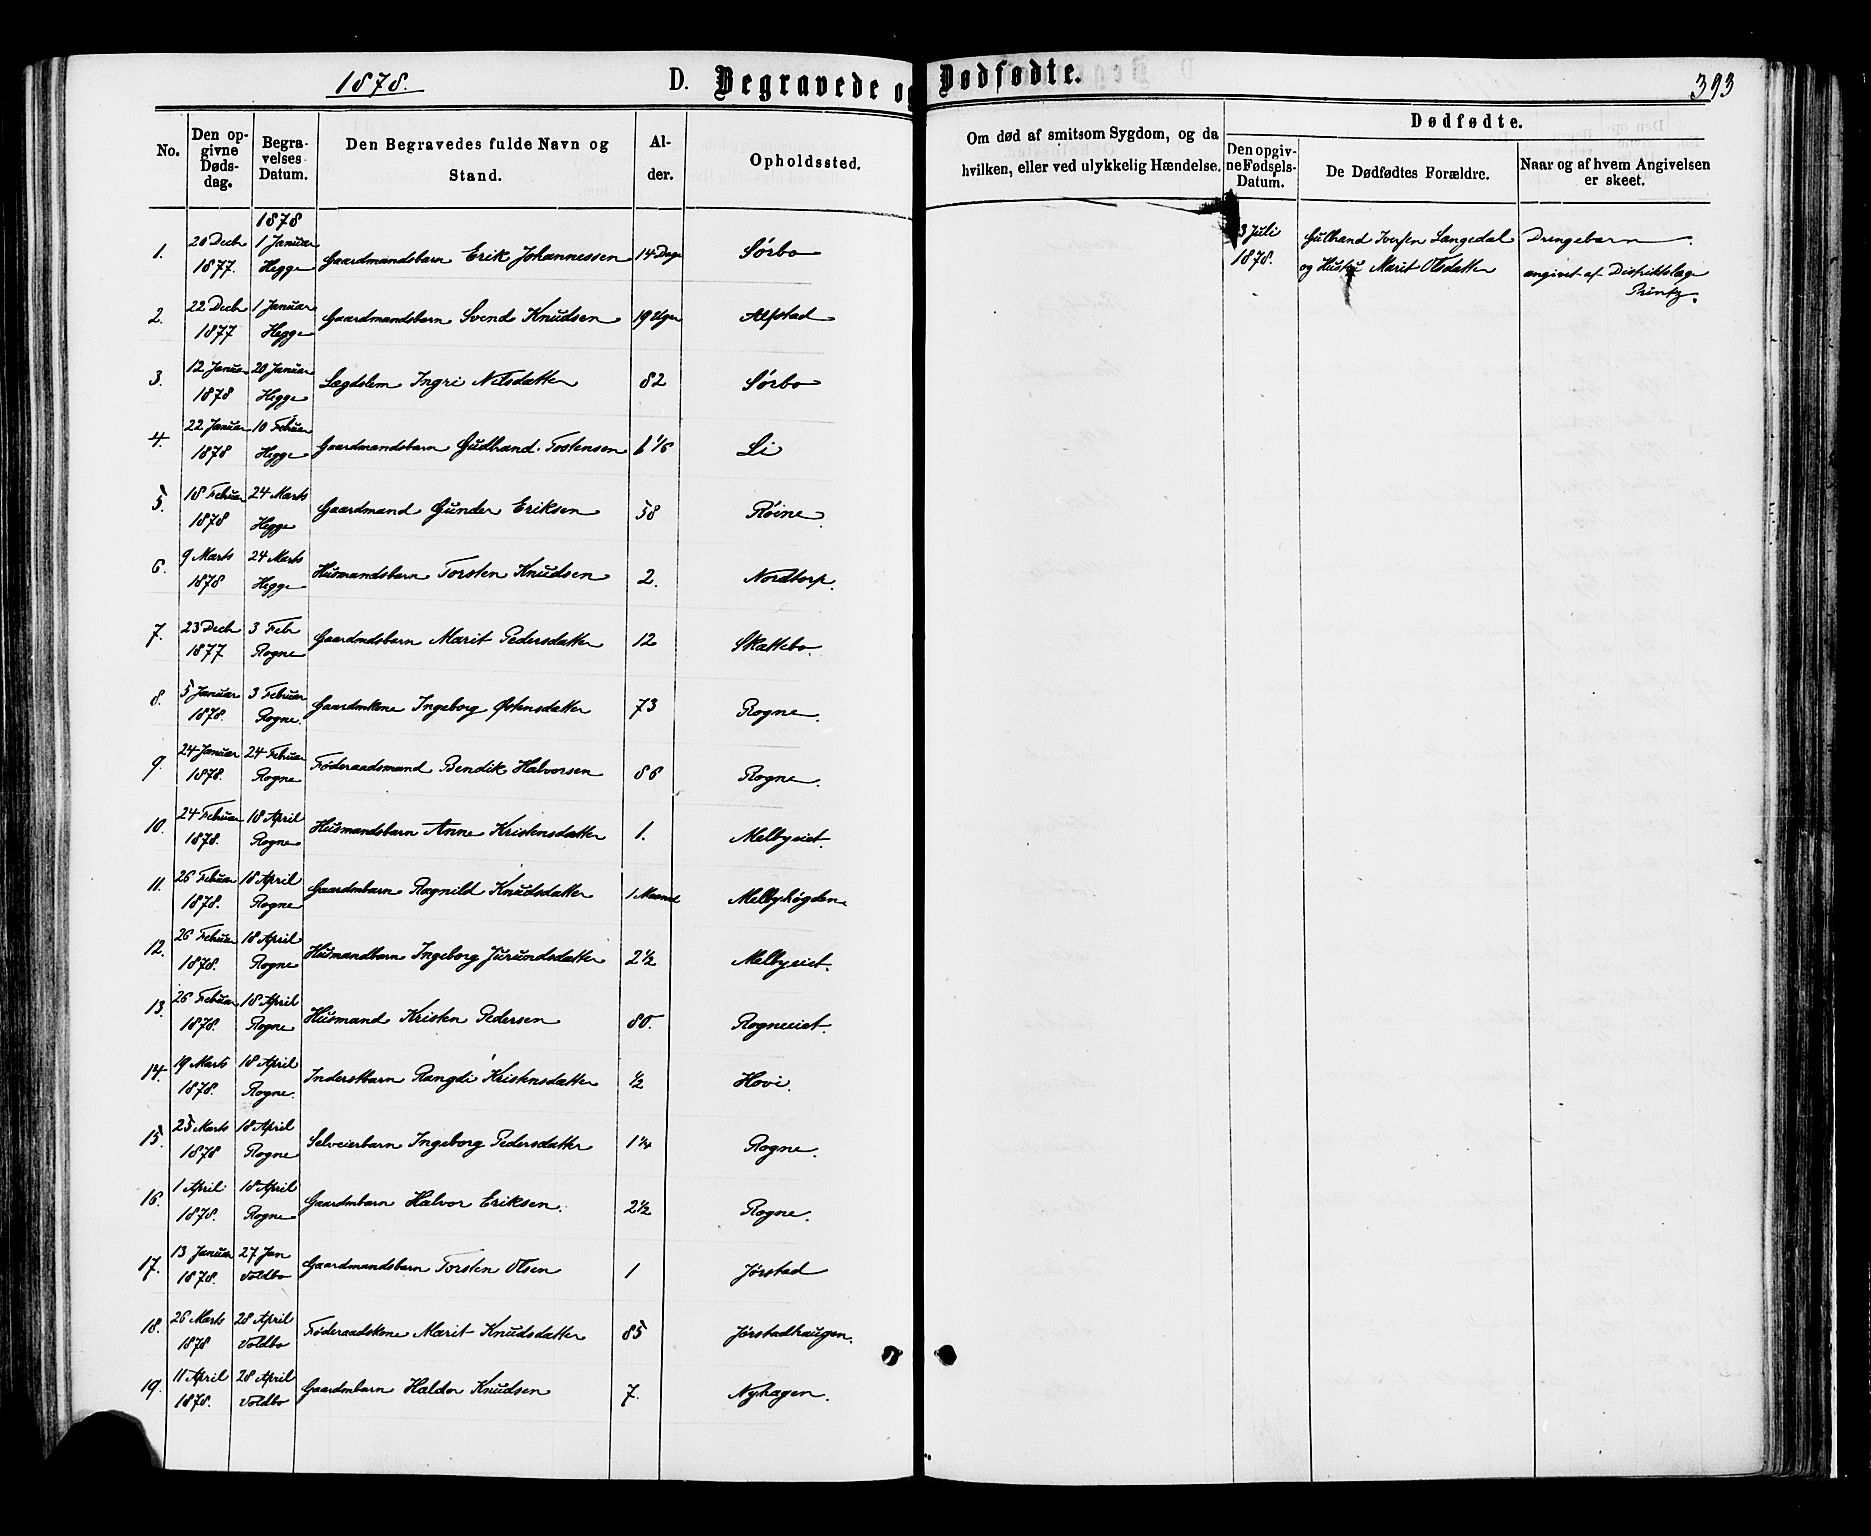 1878.
D. Begravede og Dødfødte.
393
No.
Den opgivne Dødsdag.
Begravelses Datum.
Den Begravedes fulde Navn og Stand.
Alder.
Opholdssted.
Om død af smitsom Sygdom, og da hvilken, eller ved ulykkelig Hændelse.
Dødfødte.
Den opgivne Fødsels-Datum.
De Dødfødtes Forældre.
Naar og af hvem Angivelsen er skeet.
1878
1. 20 Decb 1877. 1 Januar Hegge Gaardmandsbarn Erik Johannessen 14 Dage Sørbo
2. 22 Decb 1877 1 Januar Hegge Gaardmandsbarn Svend Knudsen 19 Uger Alfstad
3. 12 Januar 1878 20 Januar Hegge Lægdslem Ingri Nilsdatter 82 Sørbo
4. 22 Januar 1878 10 Februar Hegge Gaardmandsbarn Gudbrand Tostensen Li
5. 18 Februar 1878 24 Marts Hegge Gaardmand Gunder Eriksen 58 Røine
6. 9 Marts 1878 24 Marts Hegge Husmandsbarn Torsten Knudsen 2. Nordtorp.
7. 23 Decb 1877 3 Febr Rogne Gaardmdsbarn Marit Pedersdatter 12 Skattebo.
8. 5 Januar 1878. 3 Februar Rogne. Gaardmkone Ingeborg Østensdatter 73 Rogne.
9. 24 Januar 1878. 24 Februar Rogne Føderaadsmand Bendik Halvorsen 86 Rogne.
10. 24 Februar 1878. 18 April Rogne Husmandsbarn Anne Kristensdatter 1. Melbyeiet.
11. 26 Februar 1878. 18 April Rogne Gaardmbarn Ragnild Knudsdatter 1 Maaned Melbyhøgden
12. 26 Februar 1878. 18 April Rogne Husmandbarn Ingeborg Jurundsdatter 2½ Melbyeiet.
13. 26 Februar 1878. 18 April Rogne Husmand Kristen Pedersen 80. Rogneeiet.
14. 19 Marts 1878. 18 April Rogne. Inderstbarn Rangdi Kristensdatter ½ Hovi.
15. 25 Marts 1878 18 April Rogne Selveierbarn Ingeborg Pedersdatter 1¼ Rogne.
16. 1 April 1878. 18 April Rogne Gaardmbarn Halvor Eriksen. 2½ Rogne.
17. 13 Januar 1878. 27 Jan Voldbo Gaardmandsbarn Torsten Olsen 1 Jørstad
18. 26 Marts 1878 28 April Voldbo Føderaadskone Marit Knudsdatter 85 Jørstadhaugen.
19. 11 April 1878. 28 April Voldbo Gaardmbarn Haldor Knudsen 7. Nyhagen.
3 Juli 1878.
Gulbrand Iversen Langedal
og Hustru Marit Olsdatter
Drengebarn
angivet af Distriktslæge
Printz.